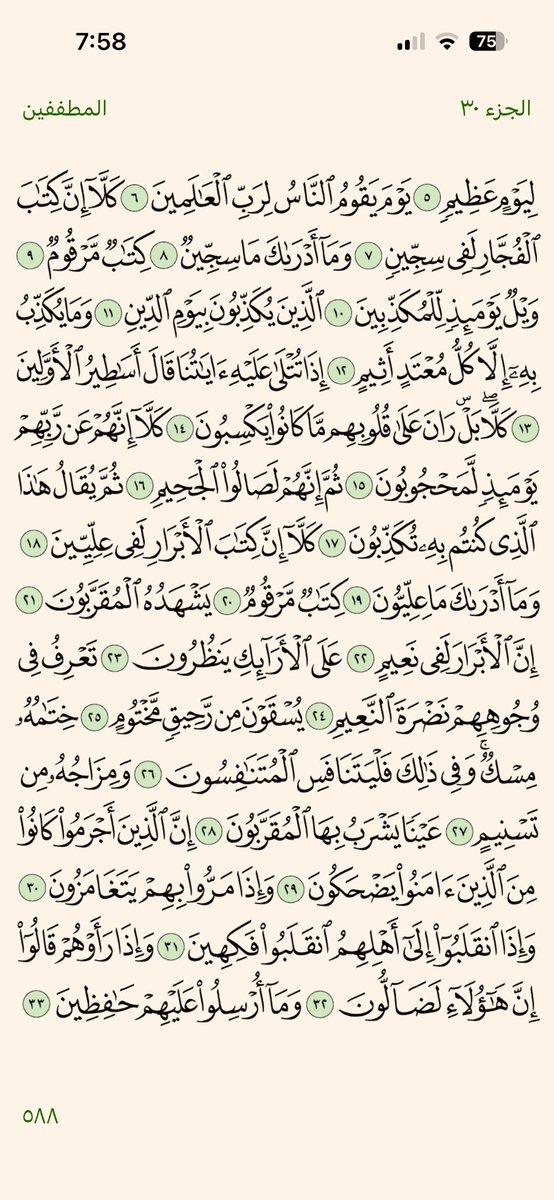 7:58
75
الجزء ٣٠
المطففين
لِيَوْمٍ عَظِيمٍ ٥ يَوْمَ يَقُومُ ٱلنَّاسُ لِرَبِّ ٱلْعَٰلَمِينَ ٦ كَلَّآ إِنَّ كِتَٰبَ
ٱلْفُجَّارِ لَفِى سِجِّينٍ ٧ وَمَآ أَدْرَىٰكَ مَا سِجِّينٌ ٨ كِتَٰبٌ مَّرْقُومٌ ٩
وَيْلٌ يَوْمَئِذٍ لِّلْمُكَذِّبِينَ ١٠ ٱلَّذِينَ يُكَذِّبُونَ بِيَوْمِ ٱلدِّينِ ١١ وَمَا يُكَذِّبُ
بِهِۦٓ إِلَّا كُلُّ مُعْتَدٍ أَثِيمٍ ١٢ إِذَا تُتْلَىٰ عَلَيْهِ ءَايَٰتُنَا قَالَ أَسَٰطِيرُ ٱلْأَوَّلِينَ
١٣ كَلَّا ۖ بَلْ ۜ رَانَ عَلَىٰ قُلُوبِهِم مَّا كَانُوا۟ يَكْسِبُونَ ١٤ كَلَّآ إِنَّهُمْ عَن رَّبِّهِمْ
يَوْمَئِذٍ لَّمَحْجُوبُونَ ١٥ ثُمَّ إِنَّهُمْ لَصَالُوا۟ ٱلْجَحِيمِ ١٦ ثُمَّ يُقَالُ هَٰذَا
ٱلَّذِى كُنتُم بِهِۦ تُكَذِّبُونَ ١٧ كَلَّآ إِنَّ كِتَٰبَ ٱلْأَبْرَارِ لَفِى عِلِّيِّينَ ١٨
وَمَآ أَدْرَىٰكَ مَا عِلِّيُّونَ ١٩ كِتَٰبٌ مَّرْقُومٌ ٢٠ يَشْهَدُهُ ٱلْمُقَرَّبُونَ ٢١
إِنَّ ٱلْأَبْرَارَ لَفِى نَعِيمٍ ٢٢ عَلَى ٱلْأَرَآئِكِ يَنظُرُونَ ٢٣ تَعْرِفُ فِى
وُجُوهِهِمْ نَضْرَةَ ٱلنَّعِيمِ ٢٤ يُسْقَوْنَ مِن رَّحِيقٍ مَّخْتُومٍ ٢٥ خِتَٰمُهُۥ
مِسْكٌ ۚ وَفِى ذَٰلِكَ فَلْيَتَنَافَسِ ٱلْمُتَنَٰفِسُونَ ٢٦ وَمِزَاجُهُۥ مِن
تَسْنِيمٍ ٢٧ عَيْنًا يَشْرَبُ بِهَا ٱلْمُقَرَّبُونَ ٢٨ إِنَّ ٱلَّذِينَ أَجْرَمُوا۟ كَانُوا۟
مِنَ ٱلَّذِينَ ءَامَنُوا۟ يَضْحَكُونَ ٢٩ وَإِذَا مَرُّوا۟ بِهِمْ يَتَغَامَزُونَ ٣٠
وَإِذَا ٱنقَلَبُوٓا۟ إِلَىٰٓ أَهْلِهِمُ ٱنقَلَبُوا۟ فَكِهِينَ ٣١ وَإِذَا رَأَوْهُمْ قَالُوٓا۟
إِنَّ هَٰٓؤُلَآءِ لَضَآلُّونَ ٣٢ وَمَآ أُرْسِلُوا۟ عَلَيْهِمْ حَٰفِظِينَ ٣٣
٥٨٨